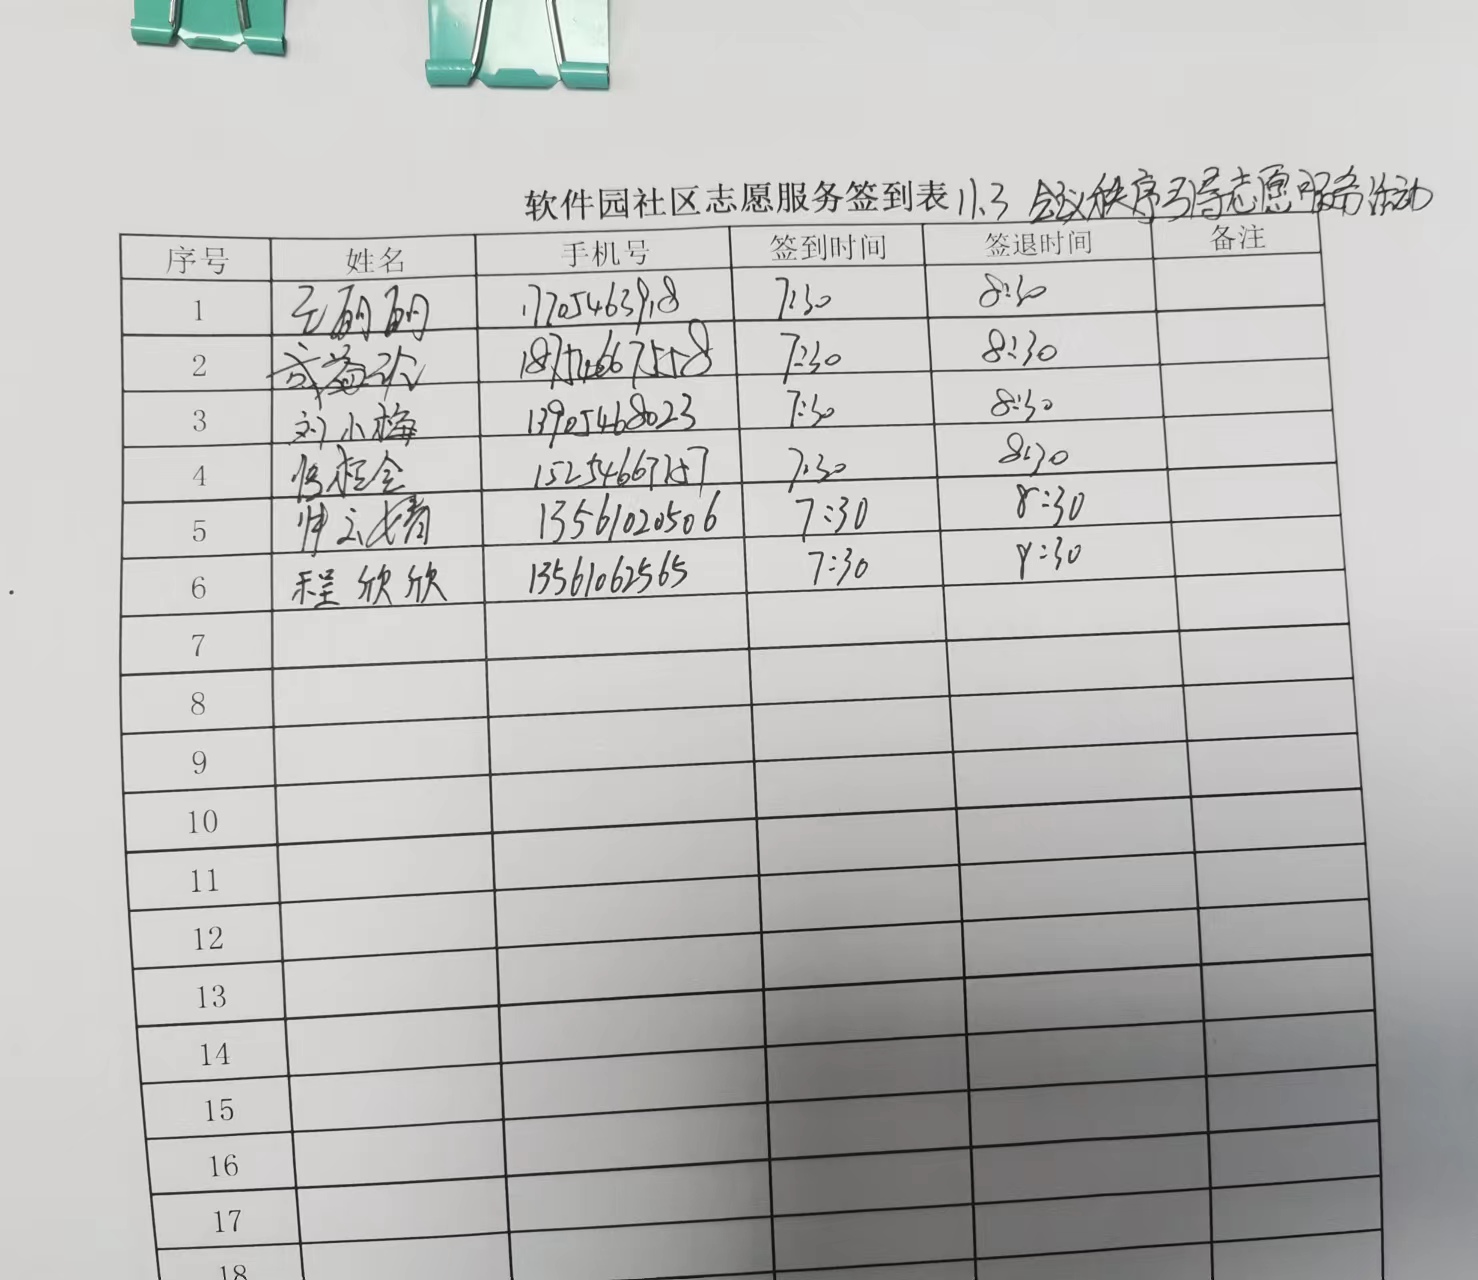 软件园社区志愿服务签到表 11.3 会议秩序引导志愿服务活动
序号 姓名 手机号 签到时间 签退时间 备注
1 17705463918 7:30 8:30
2 7:30 8:30
3 刘小梅 13905468023 7:30 8:30
4 15254667157 7:30 8:30
5 13561020506 7:30 8:30
6 程欣欣 13561062565 7:30 8:30
7
8
9
10
11
12
13
14
15
16
17
18